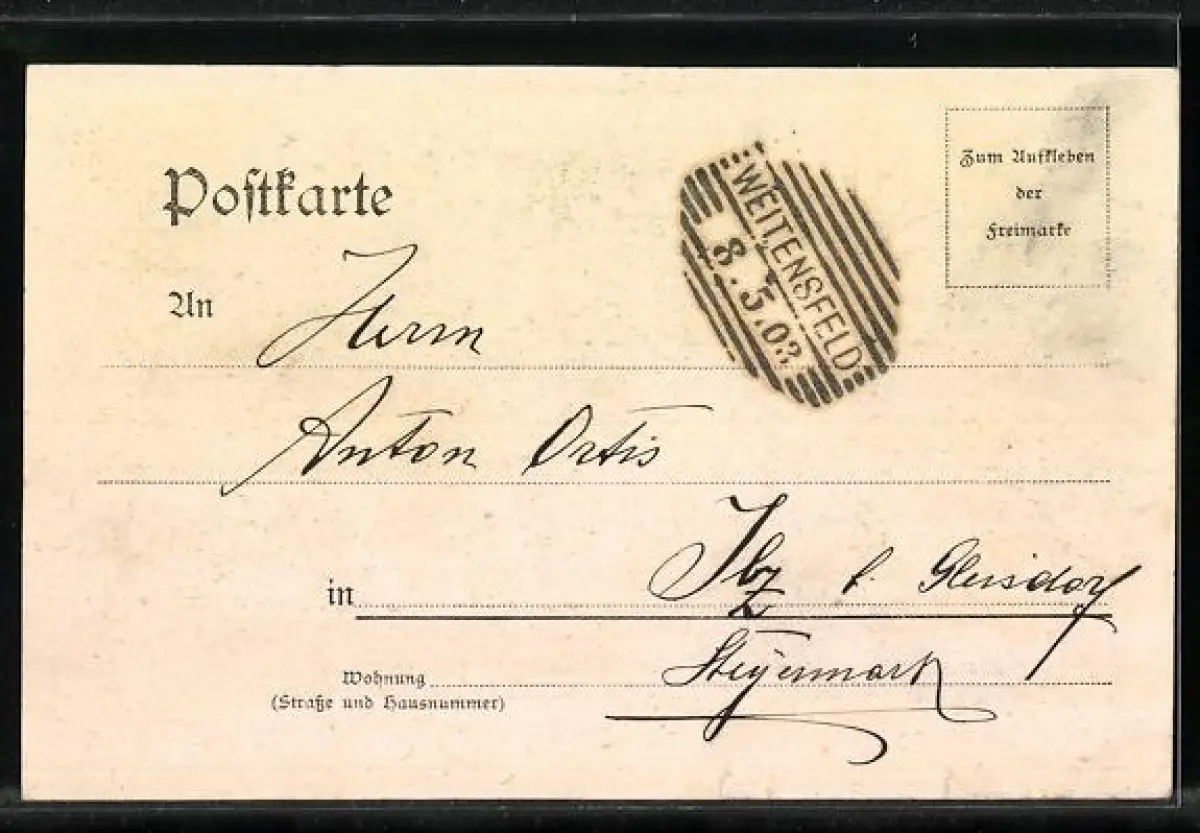 Postkarte
WEITENSFELD
8.5.03
Zum Aufkleben
der
Freimarke
An Herrn
Anton Ortis
in Ilz b. Gleisdorf
Wohnung Steyermark
(Straße und Hausnummer)